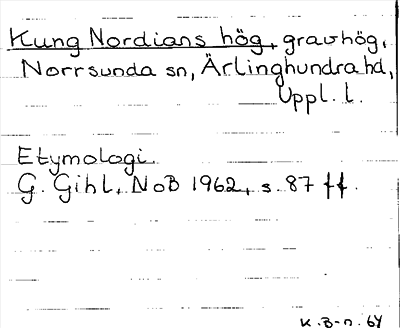 Kung Nordians hög, gravhög,
Norrsunda sn, Ärlinghundra hd,
Uppl. l.
Etymologi
G. Gihl, NoB 1962, s. 87 ff.
K.B-n. 64